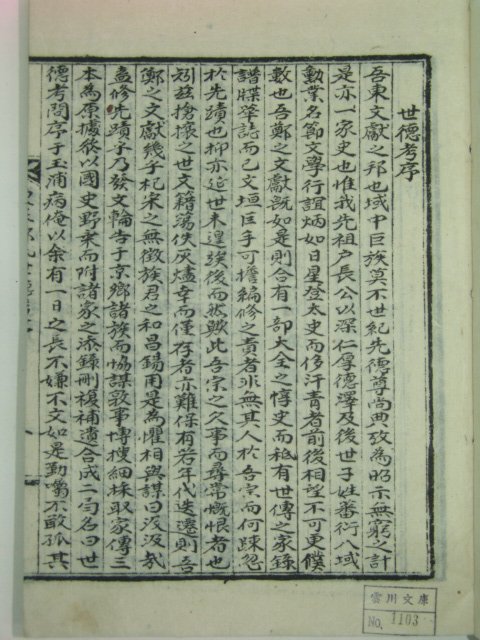 世德考序
吾東文獻之邦也域中巨族莫不世紀先德尊尚典攷為昭示無窮之計
是亦一家史也惟我先祖戶長公以深仁厚德澤及後世子姓蕃衍八域
勳業名節文學行誼炳如日星登太史而侈汗青者前後相望不可更僕
數也吾鄭之文獻旣如是則合有一部大全之惇史而秪有世傳之家錄
譜牒筆誌而已文垣巨手可擔編修之責者非無其人於吾宗而何踈忽
於先蹟也抑亦延世未遑
後而然歟此吾宗之欠事而尋常慨恨者也
矧玆搶攘之世文籍蕩佚灰燼幸而僅存者亦難保有若年代迭遷則吾
鄭之文獻幾乎杞宋之無徵族君之和昌錫用是為懼相與謀曰汲汲哉
盍修先蹟乎乃發文輪告于京鄕諸族而恊謀敦事博搜細採取家傳三
本為原據後以國史野乘而附諸家之添錄刪複補遺合成二局名曰世
德考問序于玉浦病俺以余有一日之長不嫌不文如是勤囑不敢孤其
雲川文庫
No. 1103